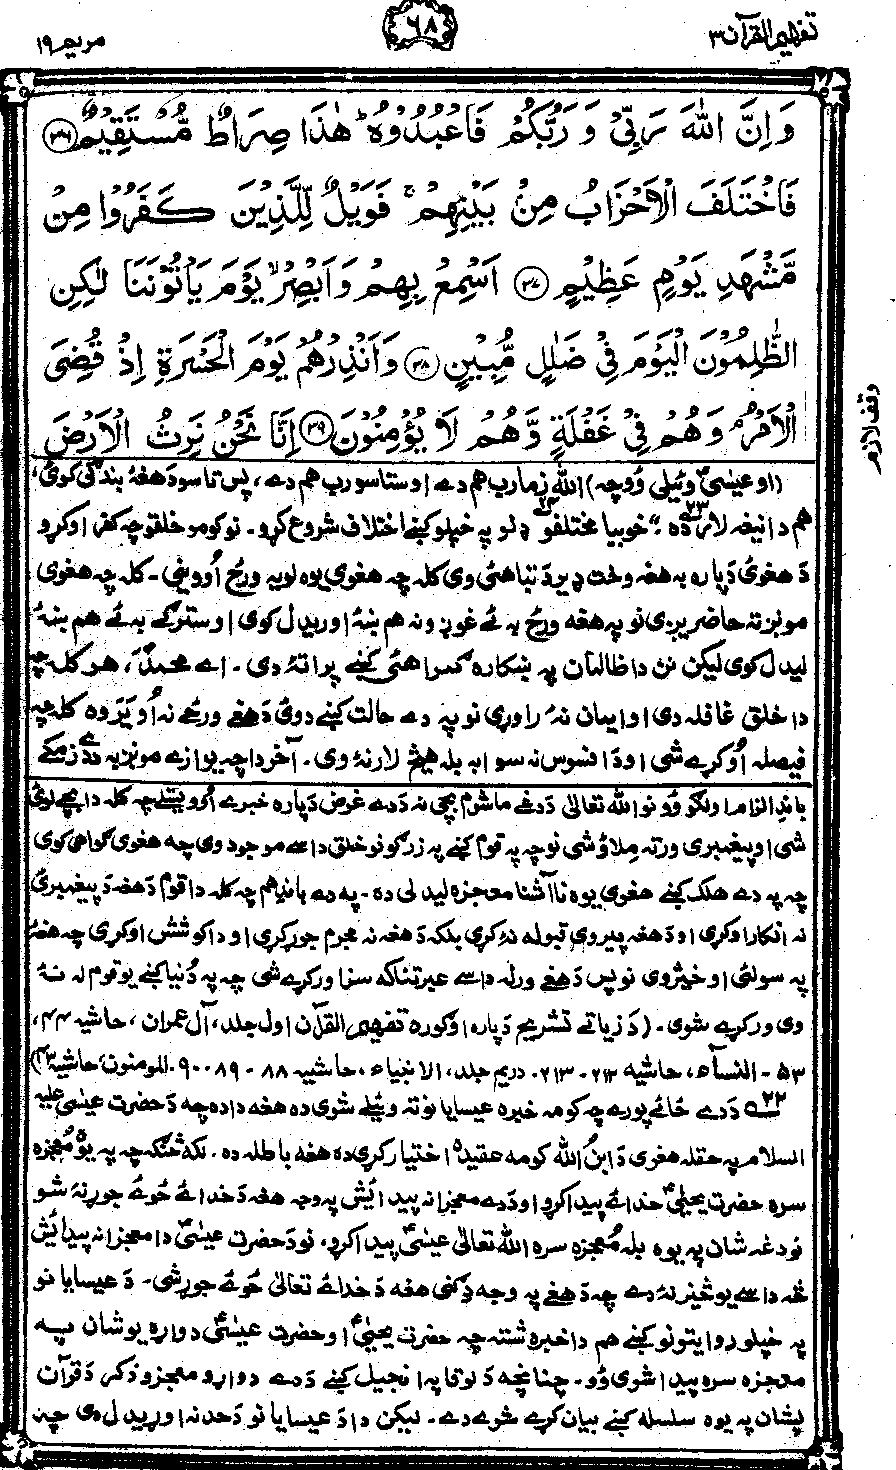 تفهيم القرآن ٣
٦٨
مريم ١٩
وَاِنَّ اللّٰهَ رَبِّىْ وَ رَبُّكُمْ فَاعْبُدُوْهُ ؕ هٰذَا صِرَاطٌ مُّسْتَقِيْمٌ ﴿٣٦﴾
فَاخْتَلَفَ الْاَحْزَابُ مِنْۢ بَيْنِهِمْ ۚ فَوَيْلٌ لِّلَّذِيْنَ كَفَرُوْا مِنْ
مَّشْهَدِ يَوْمٍ عَظِيْمٍ ﴿٣٧﴾ اَسْمِعْ بِهِمْ وَاَبْصِرْ ۙ يَوْمَ يَاْتُوْنَنَا لٰكِنِ
الظّٰلِمُوْنَ الْيَوْمَ فِىْ ضَلٰلٍ مُّبِيْنٍ ﴿٣٨﴾ وَاَنْذِرْهُمْ يَوْمَ الْحَسْرَةِ اِذْ قُضِىَ
الْاَمْرُ ۘ وَهُمْ فِىْ غَفْلَةٍ وَّهُمْ لَا يُؤْمِنُوْنَ ﴿٣٩﴾ اِنَّا نَحْنُ نَرِثُ الْاَرْضَ
وقف لازم
(او عيسىٰؑ وئيلى وُوچه) الله زما رب هم دے اوستاسو رب هم دے، پس تاسو دَ هغهٔ بندګى کوئ،
هم دا نيغه لار ده ۲۳ ؞ خو بيا مختلفو ډلو په خپلو کښے اختلاف شروع کړو. نو کومو خلقو چه کفر اوکړو
دَ هغوئ دَپاره به هغه وخت ډير دَ تباهئ وى کله چه هغوى يوه لويه ورځ اُووينى. کله چه هغوى
مونږ ته حاضريږى نو په هغه ورځ به ئے غوږونه هم ښهٔ اوريدل کوى او سترګے به ئے هم ښهٔ
ليدل کوى ليکن نن دا ظالمان په ښکاره ګمراهئ کښے پراتهٔ دى. اے محمدؐ، هر کله چه
دا خلق غافله دى او ايمان نهٔ راوړى نو په دے حالت کښے دوئ دَ هغے ورځے نه اُويَرَوه کله چه
فيصله اُوکړے شى او دَ افسوس نه سوا به بله هيڅ لار نهٔ وى. آخر دا چه يوازے مونږ به دَ زمکے
باندِ الزام اولګوؤ نو الله تعالىٰ دَ دغے ماشوم بچى نه دَ دے غرض دَپاره خبرے اُکړو يستلے چه کله دا بچے لوئ
شى او پيغمبرى ورته ملاؤ شى نو چه په قوم کښے په زرګونو خلق داسے موجود وى چه هغوى ګواهى کوى
چه په دے هلک کښے هغوى يوه نا آشنا معجزه ليدلى ده. په دے باندِ هم چه کله دا قوم دَ هغه دَ پيغمبرئ
نه انکار اوکړى او دَ هغه پيروى قبوله نهٔ کړى بلکه دَ هغه نه مجرم جوړ کړى او دا کوشش اوکړى چه هغهٔ
په سولئ او خيژوى نو پس دَ هغے ورله داسے عبرتناکه سزا ورکړے شى چه په دُنيا کښے يو قوم له نهٔ
وى ورکړے شوى. (دَ زياتے تشريح دَپاره اوګوره تفهيم القرآن اول جلد، آل عمران، حاشيه ۴۴،
۵۳ - النسآء، حاشيه ۲۱۲ - ۲۱۳. دريم جلد، الانبياء، حاشيه ۸۸ - ۸۹ - ۹۰. المومنون، حاشيه ۴۳)
۲۲ دَ دے ځائے پورے چه کومه خبره عيسايانو ته وئيلے شوى ده هغه دا ده چه دَ حضرت عيسىٰ عليه
السلام په حقله هغوى دَ ابنُ الله کومه عقيده اختيار کړى ده هغه باطله ده. لکه څنګه چه په يوه مُعجزه
سره حضرت يحيىٰؑ خدائے پيدا کړو او دَ دے معجزانه پيدائش په وجه هغه دَ خدائے ځوئے جوړ نهٔ شو
نو دغه شان په يوه بله مُعجزه سره الله تعالىٰ عيسىٰؑ پيدا کړو، نو دَ حضرت عيسىٰؑ دا معجزانه پيدائش
څه داسے يو څيز نهٔ دے چه دَ هغے په وجه دِ ګنى هغه دَ خدائے تعالىٰ ځوئے جوړ شى. دَ عيسايانو
په خپلو روايتونو کښے هم دا خبره شته چه حضرت يحيىٰؑ او حضرت عيسىٰؑ دواړه يو شان په
معجزه سره پيدا شوى وُو. چنانچه دَ لوقا په انجيل کښے دَ دے دواړو معجزو ذکر دَ قرآن
پشان په يوه سلسله کښے بيان کړے شوے دے. ليکن دا دَ عيسايانو دَ حد نه اوړيدل دى چه